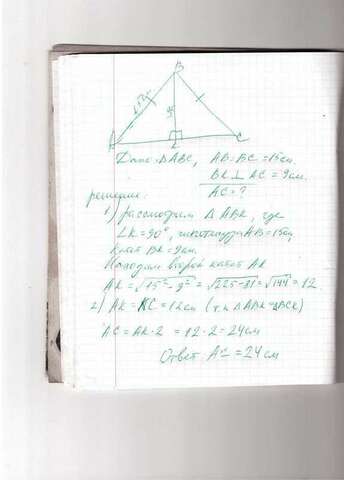 B
15см
9
A
C
Дано: ΔABC, AB=BC=15см.
BK⊥AC=9см.
AC=?
решение:
1) рассмотрим ΔABK, где
∠K=90°, гипотенуза AB=15см,
катет BK=9см.
Находим второй катет AK
AK=√15²-9²=√225-81=√144=12
2) AK=KC=12см (т.к ΔABK=ΔBCK)
AC=AK·2=12·2=24см
Ответ: AC=24см